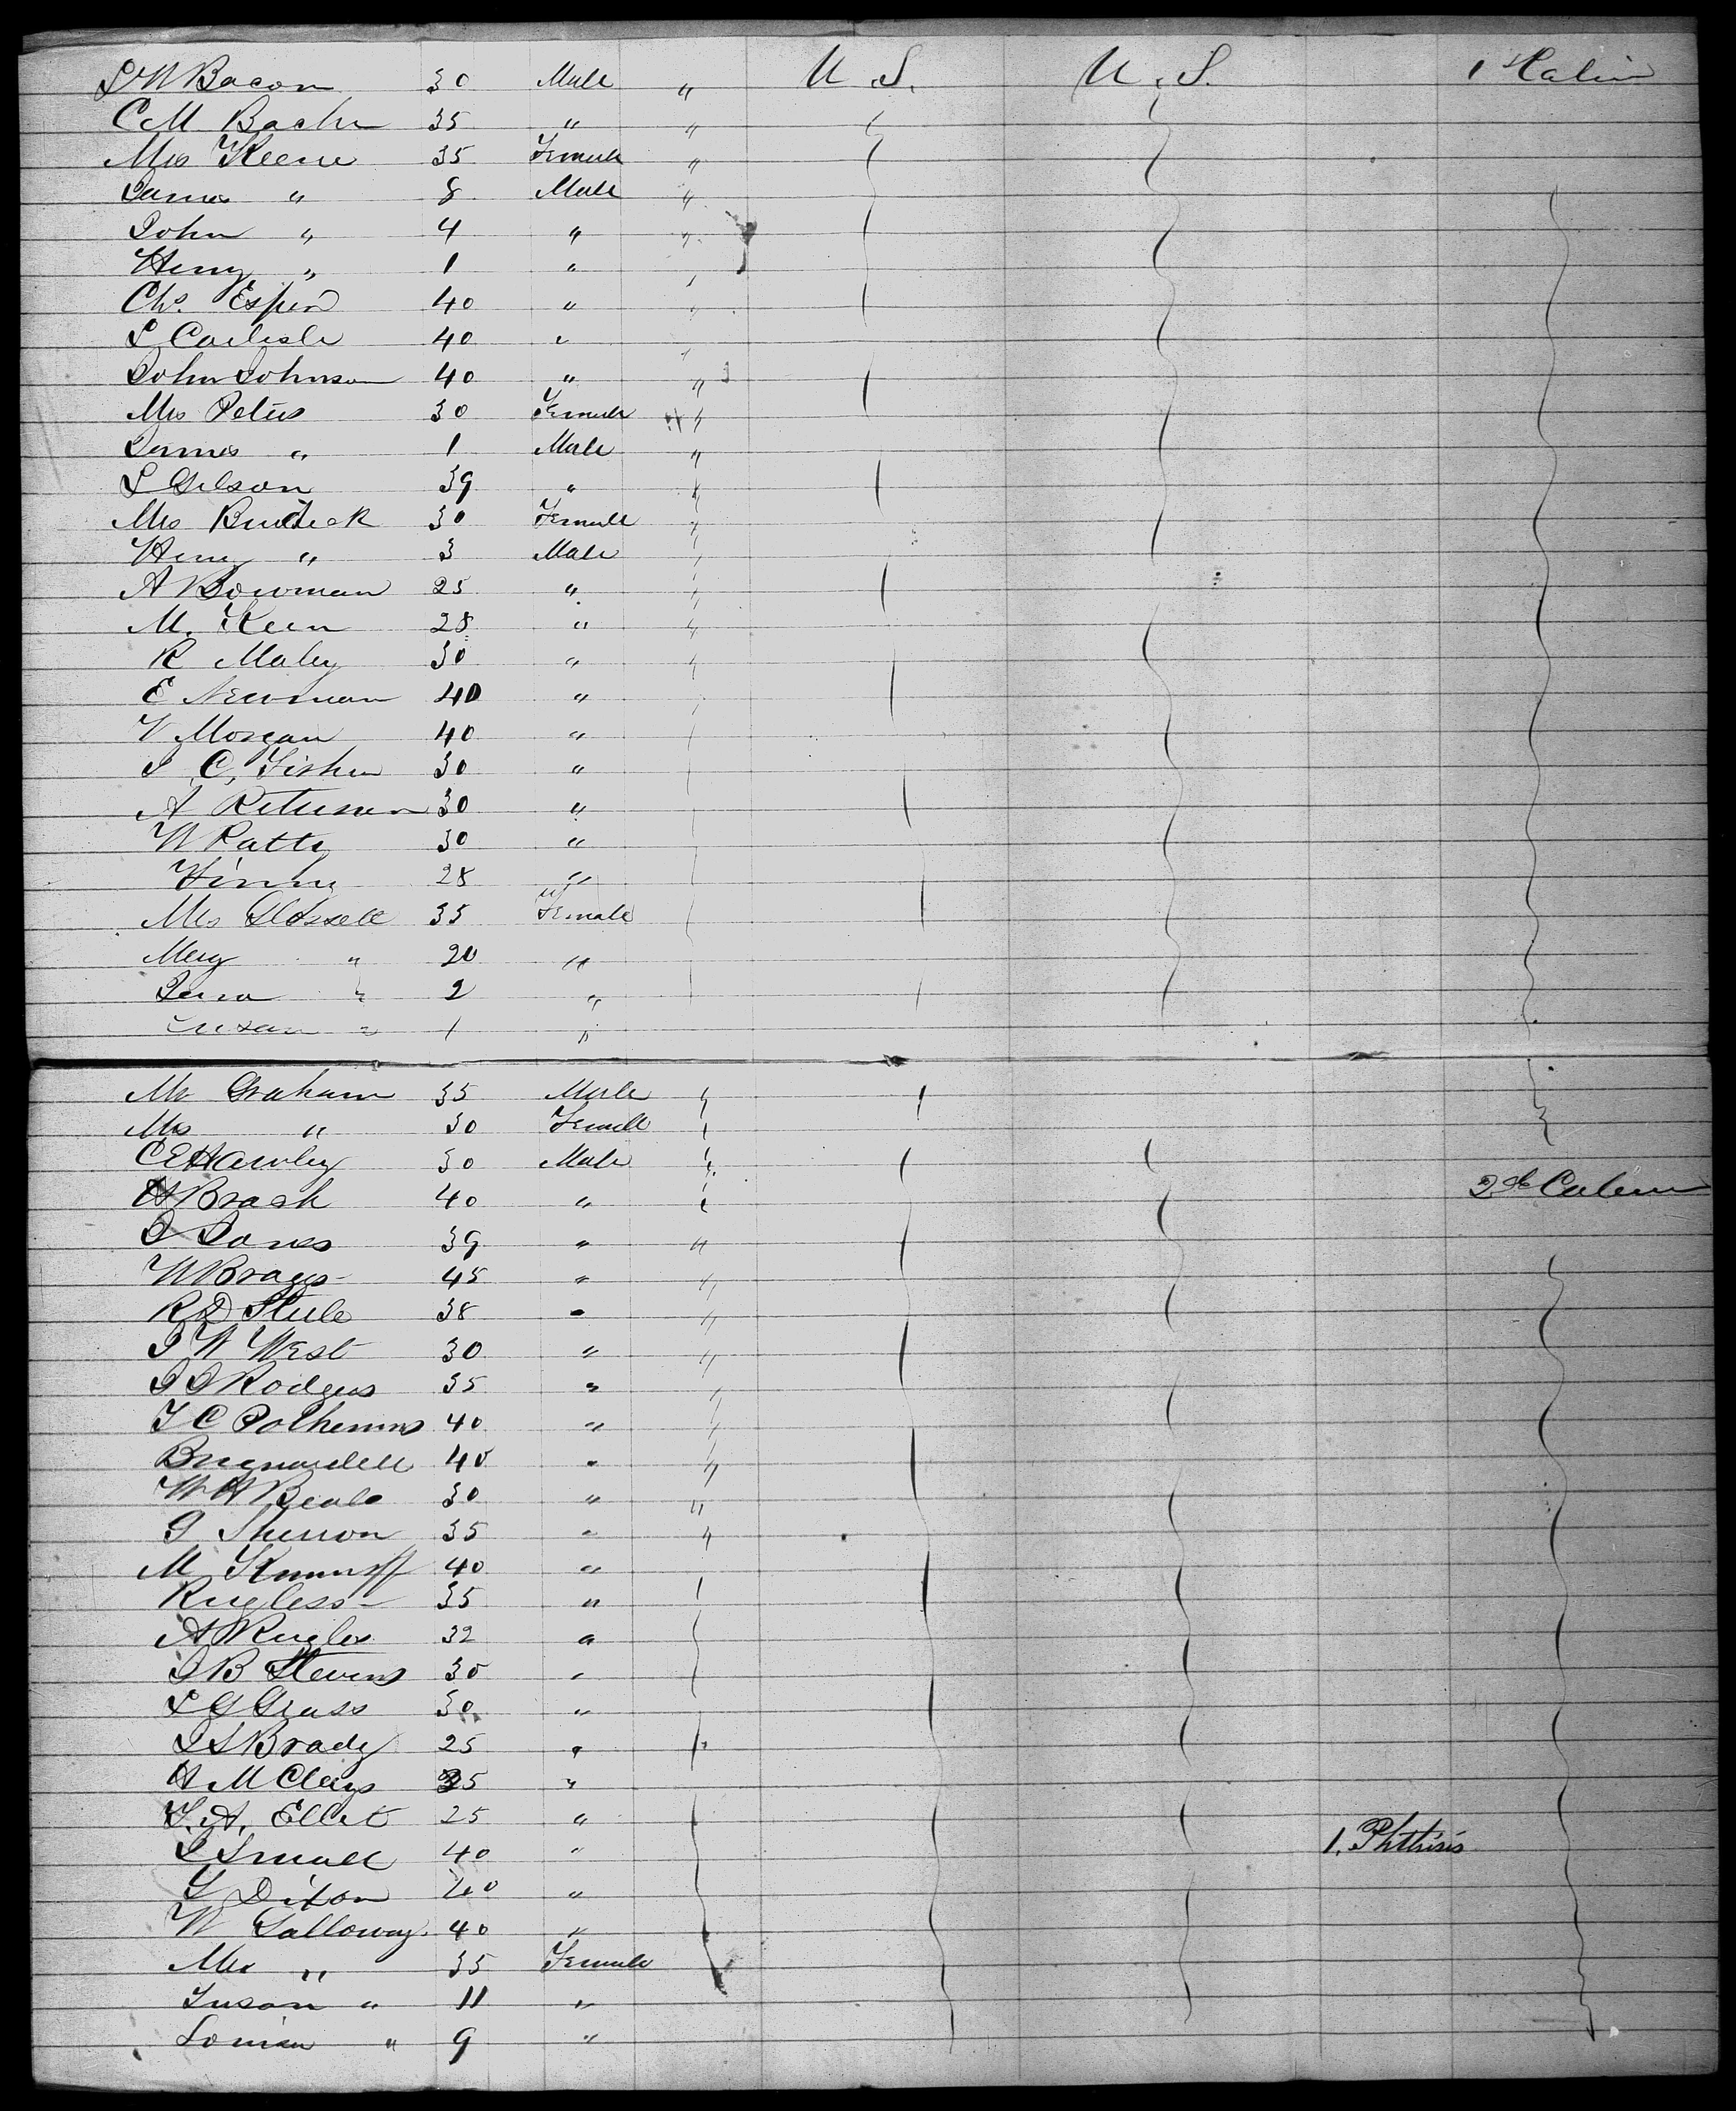 S W Bacon 30 Male " U.S. U.S. 1 Cabin
C M Bache 35 " "
Mrs Keene 35 Female "
James " 8 Male "
John " 4 " "
Henry " 1 "
Chs. 40 "
S Carlisle 40 "
John Johnson 40 " "
Mrs Peters 30 Female "
James " 1 Male "
S Gelson 39 " "
Mrs 30 Female "
Henry " 3 Male
A Bowman 25 "
M. Keen 28 " "
R Maley 30 "
E Newman 40 "
W Morgan 40 "
J C, Fisher 30 "
A 30 "
W Patty 30 "
28 "
Mrs 35 Female
Mary " 20 "
" 2 "
Susan " 1 "
Mr Graham 35 Male "
Mrs " 30 Female
C E Hawley 30 Male
H Brash 40 " 2d Cabin
J Jones 39 " "
W Brays 45 " "
R D Steele 38 " "
J W West 30 " "
J J Rodgers 35 " "
T C Polhemus 40 " "
Brignardell 40 " "
W H Beals 30 " "
G Sherron 35 " "
M 40 "
Rugless 35 "
A Rugles 32 "
J B Stevens 30 "
S G Grass 30 "
J S Brady 25 "
H M Clays 35 "
T. A. Ellet 25 "
J Small 40 " 1. Phthisis
Y Dixon 40 "
W Galloway. 40 "
Mrs " 35 Female
Susan " 11 "
" 9 "